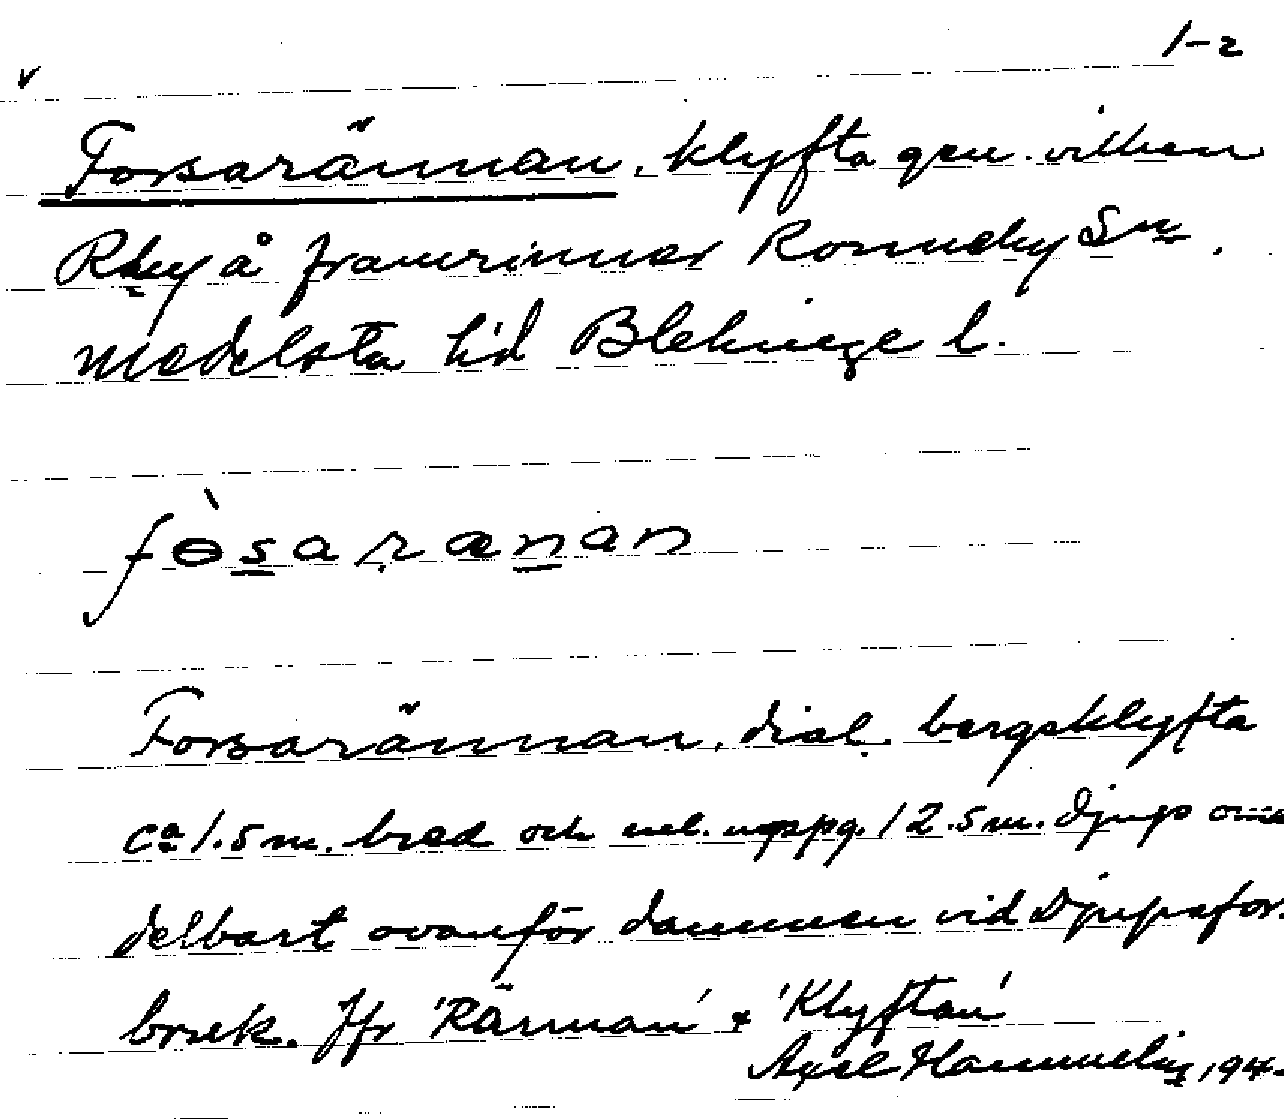 1-2
v
Forsarännan, klyfta gen. vilken
Rby å framrinner Ronneby Sn.
Medelsta hd Blekinge l.
fòsaranan
Forsarännan, dial. bergsklyfta
ca 1.5 m. bred och enl. uppg. 12.5 m. djup ome
delbart ovanför dammen vid Djupafor
bruk. Jfr 'Rännan' & 'Klyftan'
Axel 194